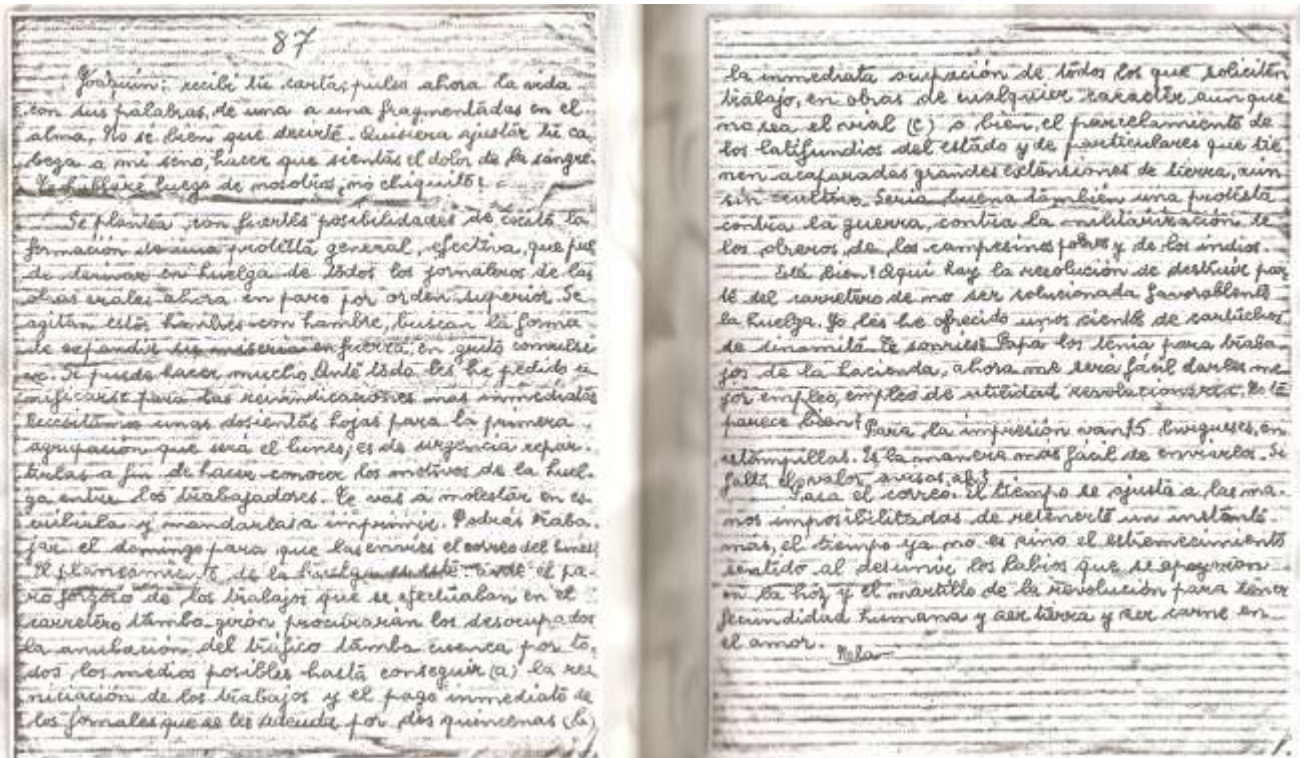 87
Joaquín: recibí tu carta; pulso ahora la vida
con tus palabras, de una a una fragmentadas en el
alma. No se bien que decirte. Quisiera ajustar tu ca
beza a mi seno, hacer que sientas el dolor de la sangre.
luego de nosotros, no chiquito?
Se plantea, con fuertes posibilidades de éxito la
formación de una protesta general, efectiva, que pue
de derivar en huelga de todos los jornaleros de las
obras viales ahora en paro por orden superior. Se
agitan estos hombres con hambre, buscan la forma
de expandir su miseria en fuerza, en grito convulsi
vo. Se puede hacer mucho. Ante todo les he pedido u
nificarse para las reivindicaciones mas inmediatas
Necesitamos unas dosientas hojas para la primera
agrupación que será el lunes, es de urgencia repar
tirlas a fin de hacer conocer los motivos de la huel-
ga entre los trabajadores. Te vas a molestar en es
cribirla y mandarlas a imprimir. Podrás traba-
jar el domingo para que las envies el correo del lunes
El de la huelga el pa-
ro forzoso de los trabajos que se efectuaban en el
carretero tambo-girón procurarán los desocupados
la anulación del tráfico tambo cuenca por to-
dos los medios posibles hasta conseguir (a) la rei
niciación de los trabajos y el pago inmediato de
los jornales que se les adeuda por dos quincenas (b)
la inmediata ocupación de todos los que soliciten
trabajo, en obras de cualquier caracter aunque
no sea el vial (c) o bien, el parcelamiento de
los latifundios del estado y de particulares que tie
nen acaparadas grandes extensiones de tierra, aun
sin cultivo. Seria buena también una protesta
contra la guerra, contra la militarización de
los obreros, de los campesinos pobres y de los indios.
Está bien! Aqui hay la resolución de destruir par
te del carretero de no ser solucionada favorablente
la huelga. Yo les he ofrecido unos ciento de cartuchos
de dinamita. Te sonries? Papa los tenia para traba-
jos de la hacienda, ahora me será fácil darles me
jor empleo, empleo de utilidad revolucionaria. No te
parece bien? Para la impresión van 15 en
estampillas. Es la manera mas fácil de enviarlos. Si
falta el valor avisas, ah?
Pasa el correo. El tiempo se ajusta a las ma-
nos imposibilitadas de retenerte un instante
más, el tiempo ya no es sino el estremecimiento
sentido al desunir los labios que se apoyaron
en la hoz y el martillo de la revolución para tener
fecundidad humana y ser tierra y ser carne en
el amor.